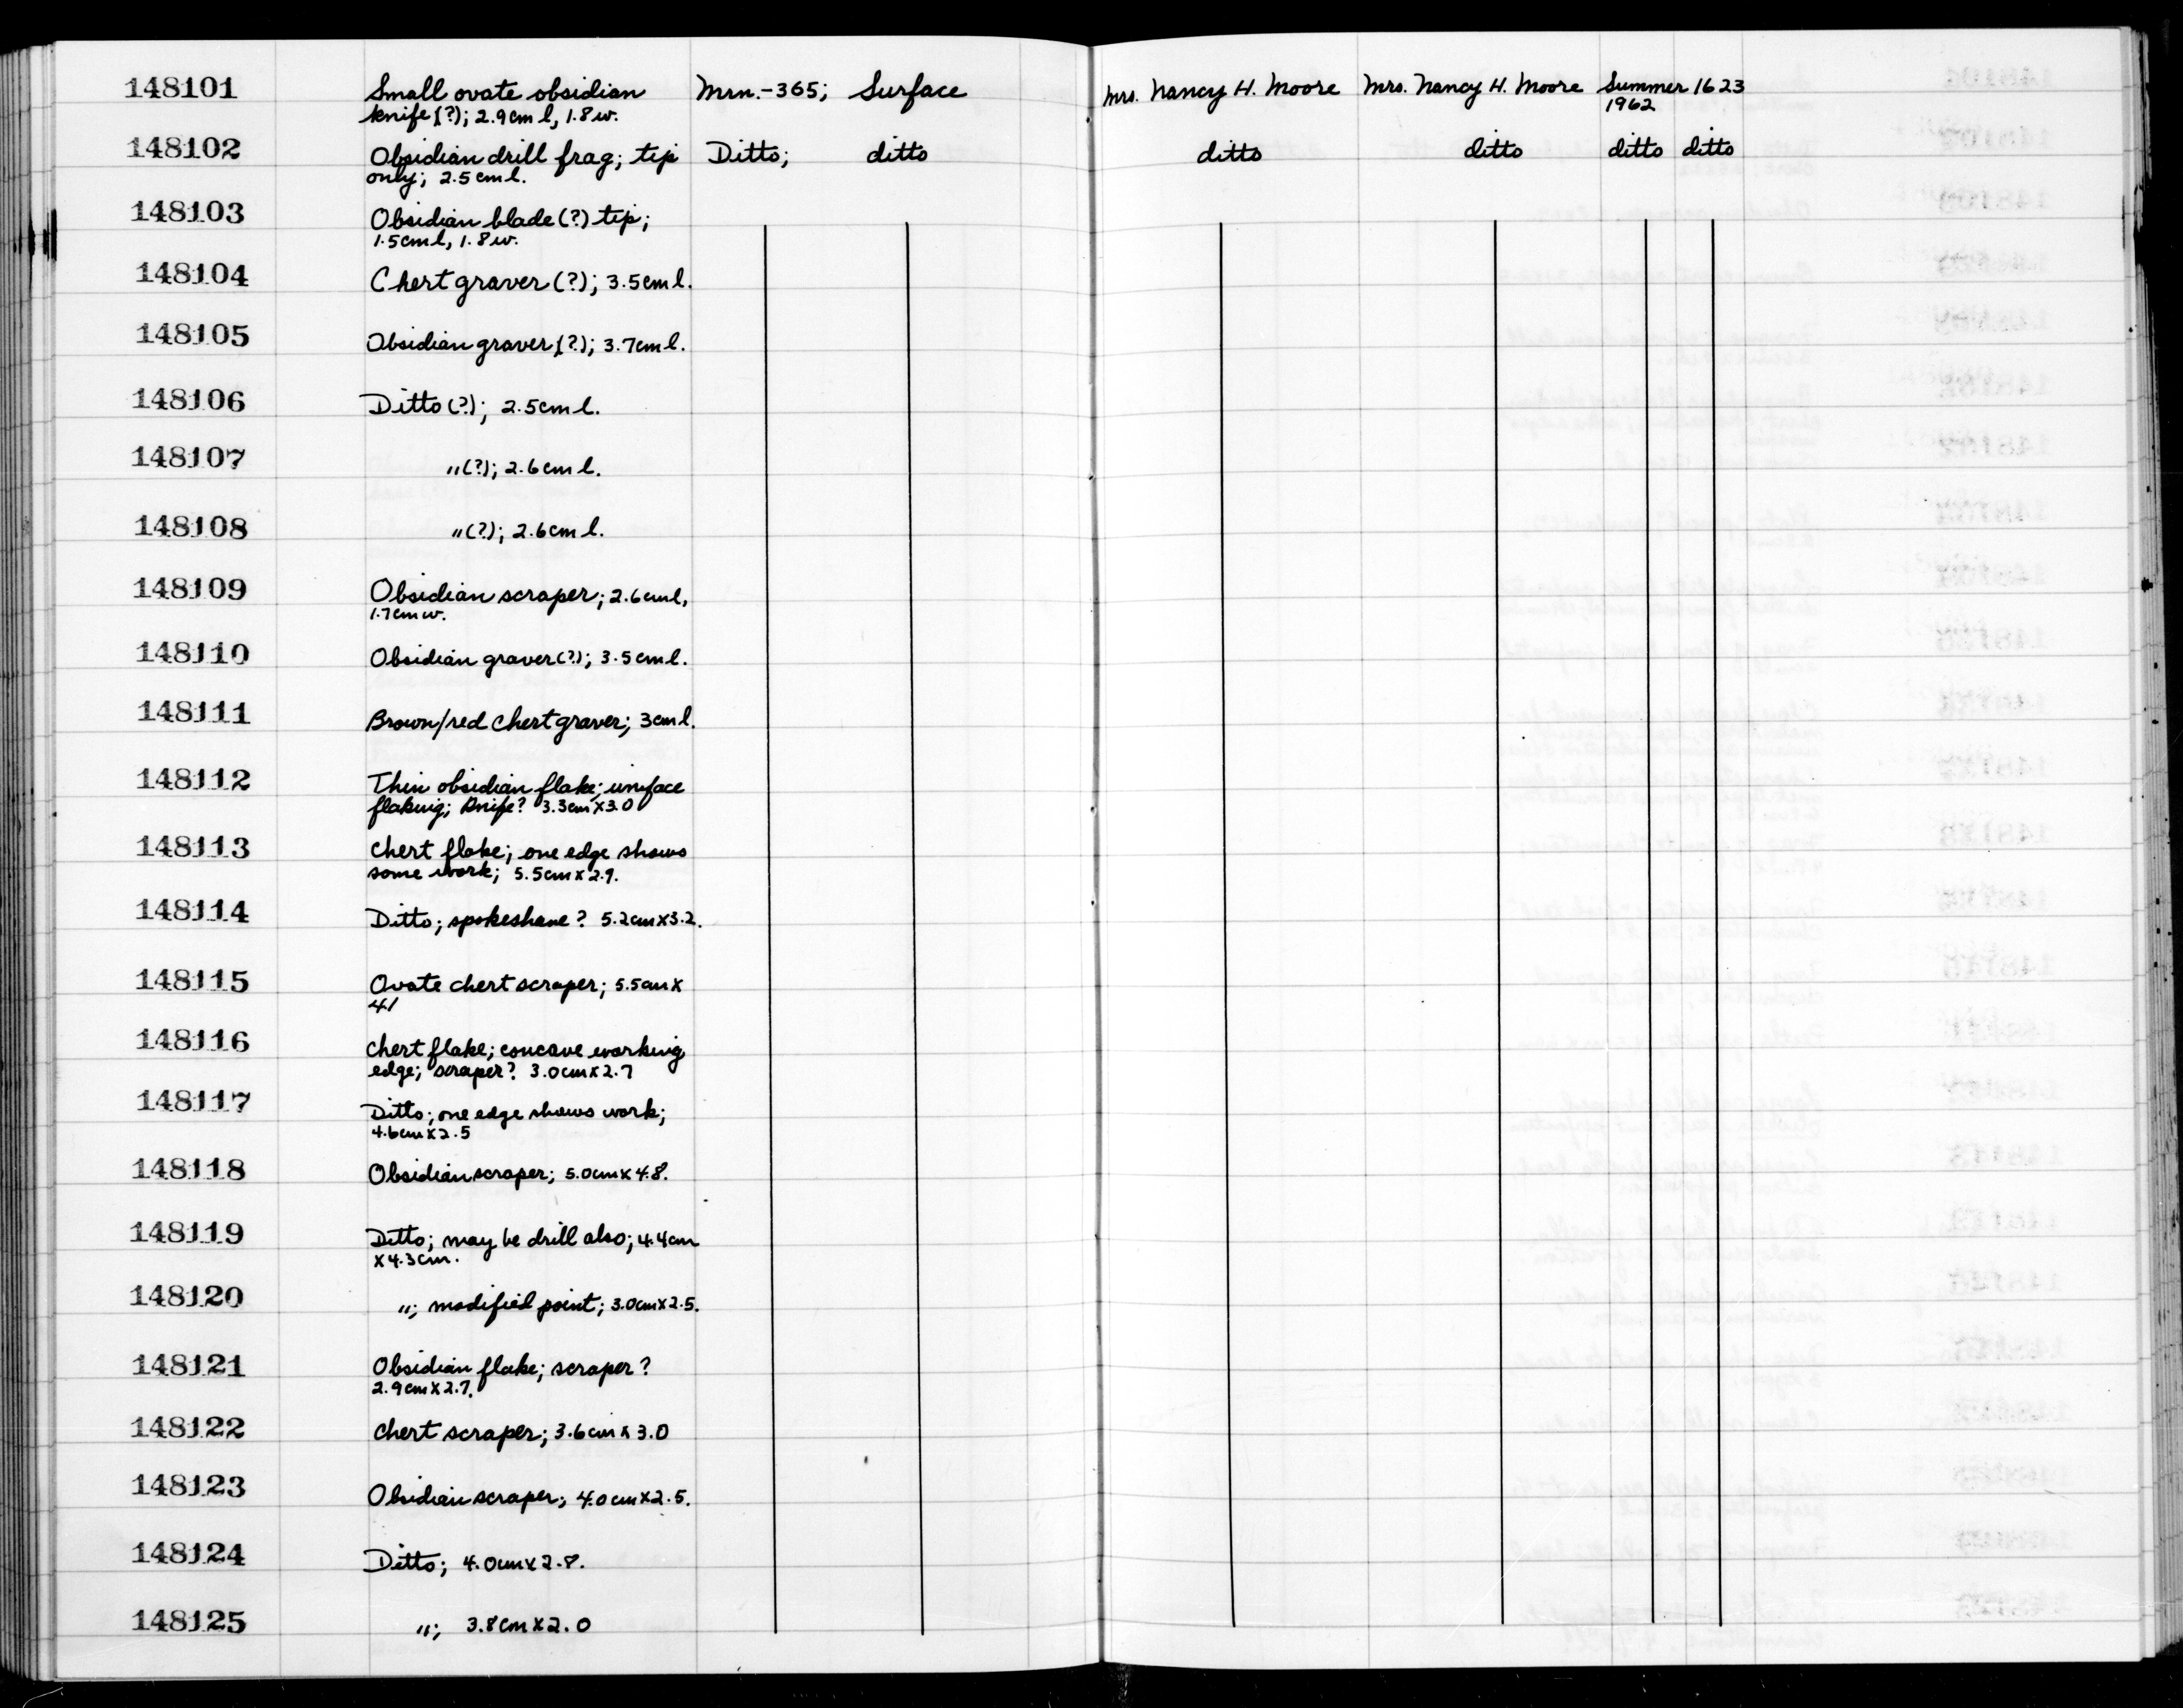 148101 Small ovate obsidian Mrn.-365; Surface Mrs. Nancy H. Moore Mrs. Nancy H. Moore Summer 1623
knife (?); 2.9cm l, 1.8 w. 1962
148102 Obsidian drill frag; tip Ditto; ditto ditto ditto ditto ditto
only; 2.5 cm l.
148103 Obsidian blade (?) tip;
1.5cm l, 1.8 w.
148104 Chert graver (?); 3.5cm l.
148105 Obsidian graver (?); 3.7cm l.
148106 Ditto (?); 2.5cm l.
148107 " (?); 2.6cm l.
148108 " (?); 2.6cm l.
148109 Obsidian scraper; 2.6cm l,
1.7cm w.
148110 Obsidian graver (?); 3.5cm l.
148111 Brown/red chert graver; 3cm l.
148112 Thin obsidian flake; uniface
flaking; knife? 3.3cm x 3.0
148113 Chert flake; one edge shows
some work; 5.5cm x 2.9.
148114 Ditto; spokeshave? 5.2cm x 3.2.
148115 Ovate chert scraper; 5.5cm x
4.1
148116 Chert flake; concave working
edge; scraper? 3.0cm x 2.7
148117 Ditto; one edge shows work;
4.6cm x 2.5
148118 Obsidian scraper; 5.0cm x 4.8.
148119 Ditto; may be drill also; 4.4cm
x 4.3cm.
148120 "; modified point; 3.0cm x 2.5.
148121 Obsidian flake; scraper?
2.9cm x 2.7.
148122 Chert scraper; 3.6cm x 3.0
148123 Obsidian scraper; 4.0cm x 2.5.
148124 Ditto; 4.0cm x 2.8.
148125 "; 3.8cm x 2.0